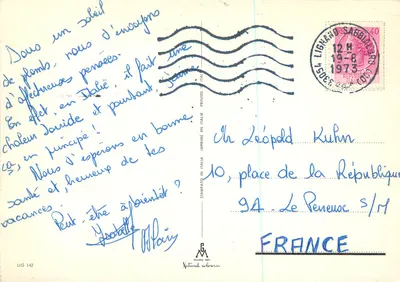 Sous un soleil
de plomb, nous t'envoyons
d'affectueuses pensées.
En effet, en Italie, il fait une
chaleur torride et pourtant, jamais
ça, en principe!
Nous t'espérons en bonne
santé et heureux de tes
vacances.
Peut-être à bientôt?
Isabelle
33054 LIGNANO SABBIADORO (UD)
12 H
19-6
1973
Mr Léopold Kuhn
10, place de la République
94. Le Perreux S/M
FRANCE
LIG 142